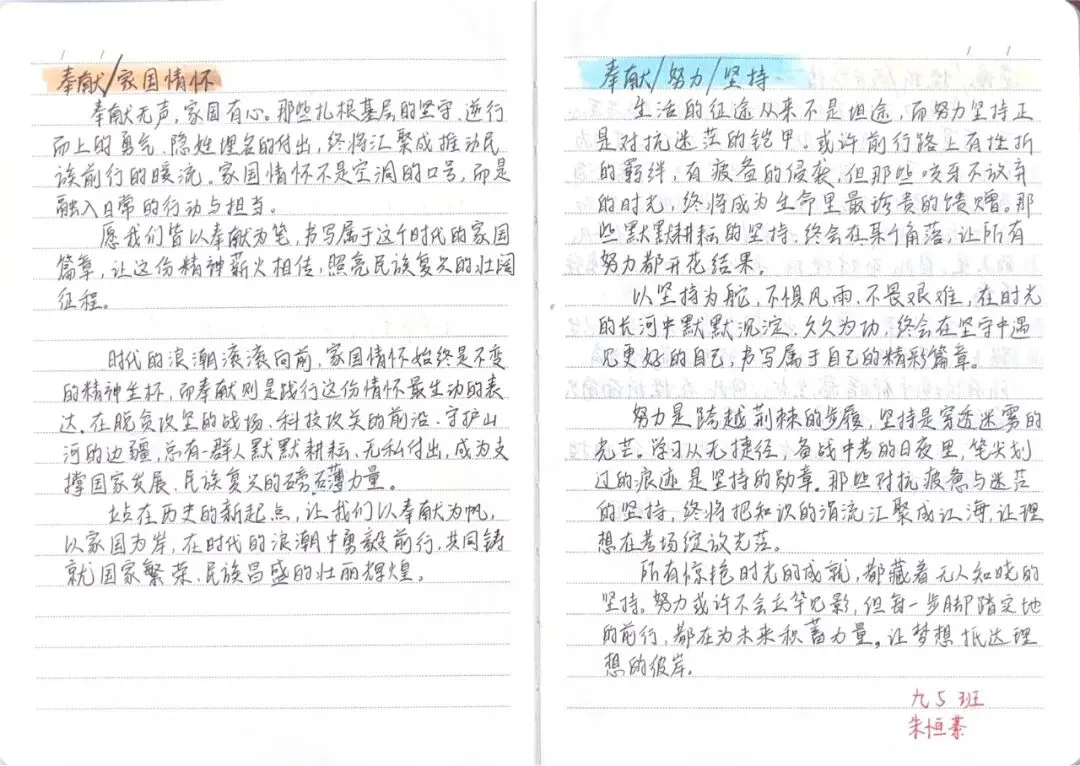 奉献/家国情怀
奉献无声,家国有心。那些扎根基层的坚守、逆行
而上的勇气、隐姓埋名的付出,终将汇聚成推动民
族前行的暖流。家国情怀不是空洞的口号,而是
融入日常的行动与担当。
愿我们皆以奉献为笔,书写属于这个时代的家国
篇章,让这份精神薪火相传,照亮民族复兴的壮阔
征程。
时代的浪潮滚滚向前,家国情怀始终是不变
的精神坐标,而奉献则是践行这份情怀最生动的表
达。在脱贫攻坚的战场、科技攻关的前沿、守护山
河的边疆,总有一群人默默耕耘、无私付出,成为支
撑国家发展、民族复兴的磅礴力量。
站在历史的新起点,让我们以奉献为帆,
以家国为岸,在时代的浪潮中勇毅前行,共同铸
就国家繁荣、民族昌盛的壮丽辉煌。
奉献/努力/坚持
生活的征途从来不是坦途,而努力坚持正
是对抗迷茫的铠甲。或许前行路上有挫折
的羁绊,有疲惫的侵袭,但那些咬牙不放弃
的时光,终将成为生命里最珍贵的馈赠。那
些默默耕耘的坚持、终会在某个角落,让所有
努力都开花结果。
以坚持为舵,不惧风雨、不畏艰难,在时光
的长河中默默沉淀、久久为功,终会在坚守中遇
见更好的自己,书写属于自己的精彩篇章。
努力是跨越荆棘的步履,坚持是穿透迷雾的
光芒。学习从无捷径,备战中考的日夜里,笔尖划
过的痕迹是坚持的勋章。那些对抗疲惫与迷茫
的坚持,终将把知识的涓流汇聚成江海,让理
想在考场绽放光芒。
所有惊艳时光的成就,都藏着无人知晓的
坚持。努力或许不会立竿见影,但每一步脚踏实地
的前行,都在为未来积蓄力量。让梦想抵达理
想的彼岸。
九5班
朱恒綦